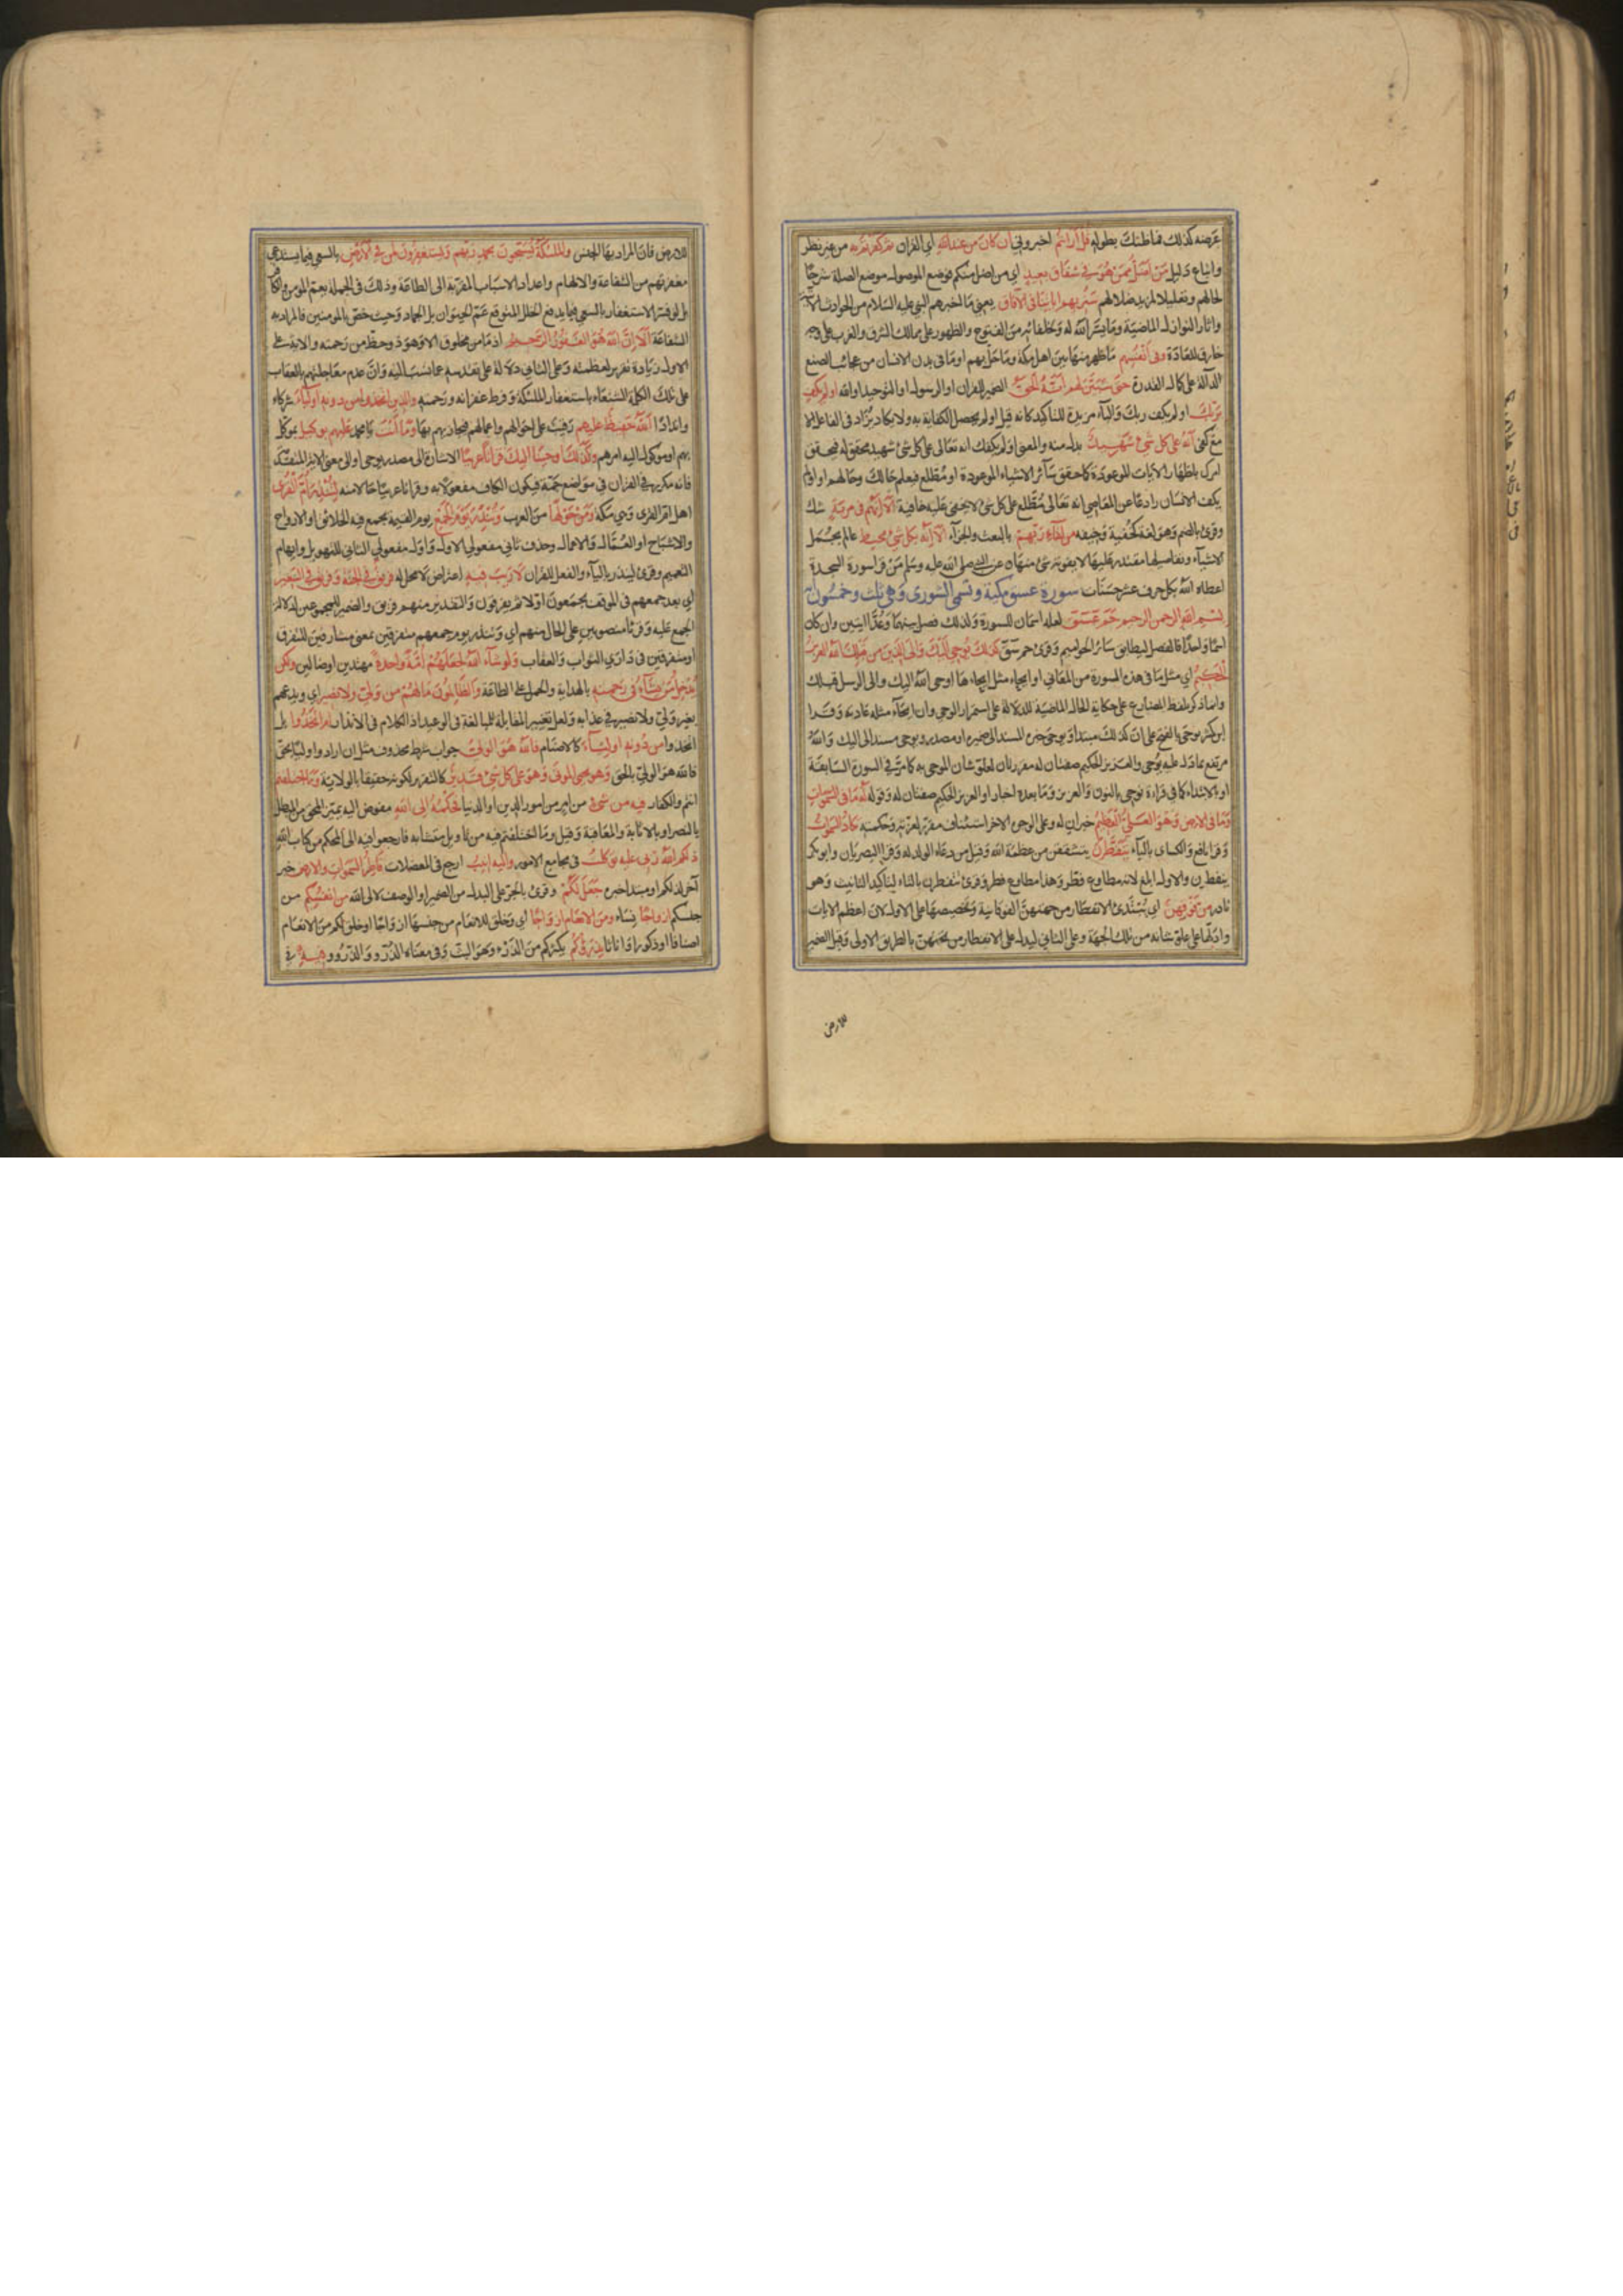 عرضه كذلك فما ظنك بطوله قل ارايتم اخبروني ان كان من عند الله اي القران ثم كفرتم به من غير نظر
واتباع دليل من اضل ممن هو في شقاق بعيد اي من اضل منكم فوضع الموصول موضع الصلة شرحا
لحالهم وتعليلا لمزيد ضلالهم سنريهم اياتنا في الافاق يعني ما اخبرهم النبي عليه السلام من الحوادث الاتية
واثار النوازل الماضية وما يسر الله له ولخلفائه من الفتوح والظهور على ممالك الشرق والغرب على وجه
خارق للعادة وفي انفسهم ما ظهر منها بين اهل مكة وما حل بهم او ما في بدن الانسان من عجائب الصنع
الدالة على كمال القدرة حتى يتبين لهم انه الحق الضمير للقران او الرسول او التوحيد او الله اولم يكف
بربك اولم يكف ربك والباء مزيدة للتاكيد كانه قيل اولم يحصل الكفاية به ولا يكاد تزاد في الفاعل الا
مع كفى انه على كل شئ شهيد بدل منه والمعنى اولم يكفك انه تعالى على كل شئ شهيد محقق له فيحقق
امرك باظهار الايات الموعودة كما حقق سائر الاشياء الموعودة او مطلع فيعلم حالك وحالهم او اولم
يكف الانسان رادعا عن المعاصي انه تعالى مطلع على كل شئ لا يخفى عليه خافية الا انهم في مرية شك
وقرئ بالضم وهو لغة كخفية وخيفة من لقاء ربهم بالبعث والجزاء الا انه بكل شئ محيط عالم بجمل
الاشياء وتفاصيلها مقتدر عليها لا يفوته شئ منها عن النبي صلى الله عليه وسلم من قرا سورة السجدة
اعطاه الله بكل حرف عشر حسنات سورة عسق مكية وتسمى الشورى وهي ثلث وخمسون
بسم الله الرحمن الرحيم حم عسق لعله اسمان للسورة ولذلك فصل بينهما وعدا ايتين وان كان
اسما واحدا فالفصل ليطابق سائر الحواميم وقرئ حم سق كذلك يوحي اليك والى الذين من قبلك الله العزيز
الحكيم اي مثل ما في هذه السورة من المعاني او ايحاء مثل ايحائها اوحى الله اليك والى الرسل قبلك
وانما ذكر بلفظ المضارع على حكاية الحال الماضية للدلالة على استمرار الوحي وان ايحاء مثله عادته وقرا
ابن كثير يوحى بالفتح على ان كذلك مبتدا ويوحى خبره المسند الى ضميره او مصدر ويوحى مسند الى اليك والله
مرتفع بما دل عليه يوحى والعزيز الحكيم صفتان له مقررتان لعلو شان الموحى به كما مر في السورة السابقة
او بالابتداء كما في قراءة نوحي بالنون والعزيز وما بعده اخبار او العزيز الحكيم صفتان له وقوله له ما في السموات
وما في الارض وهو العلي العظيم خبران له وعلى الوجوه الاخر استئناف مقرر لعزته وحكمته تكاد السموات
وقرا نافع والكسائي بالياء يتفطرن يتشققن من عظمة الله وقيل من دعاء الولد له وقرا البصريان وابو بكر
ينفطرن والاول ابلغ لانه مطاوع فطر وهذا مطاوع فطر وقرئ تتفطرن بالتاء لتاكيد التانيث وهو
نادر من فوقهن اي يبتدئ الانفطار من جهتهن الفوقانية وتخصيصها على الاول لان اعظم الايات
وادلها على علو شانه من تلك الجهة وعلى الثاني ليدل على الانفطار من تحتهن بالطريق الاولى وقيل الضمير
للارض
للارض فان المراد بها الجنس والملئكة يسبحون بحمد ربهم ويستغفرون لمن في الارض بالسعي فيما يستدعي
مغفرتهم من الشفاعة والالهام واعداد الاسباب المقربة الى الطاعة وذلك في الجملة يعم المومن والكافر
بل لو فسر الاستغفار بالسعي فيما يدفع الخلل المتوقع عم الحيوان بل الجماد وحيث خص بالمومنين فالمراد به
الشفاعة الا ان الله هو الغفور الرحيم اذ ما من مخلوق الا وهو ذو حظ من رحمته والاية على
الاول زيادة تقرير لعظمته وعلى الثاني دلالة على تقدسه عما نسب اليه وان عدم معاجلتهم بالعقاب
على تلك الكلمة الشنعاء باستغفار الملئكة وفرط غفرانه ورحمته والذين اتخذوا من دونه اولياء شركاء
واندادا الله حفيظ عليهم رقيب على احوالهم واعمالهم فيجازيهم بها وما انت يا محمد عليهم بوكيل بموكل
بهم او موكول اليه امرهم وكذلك اوحينا اليك قرانا عربيا الاشارة الى مصدر يوحي او الى معنى الاية المتقدمة
فانه مكرر في القران في مواضع جمة فيكون الكاف مفعولا به وقرانا عربيا حالا منه لتنذر ام القرى
اهل ام القرى وهي مكة ومن حولها من العرب وتنذر يوم الجمع يوم القيمة يجمع فيه الخلائق او الارواح
والاشباح او العمال والاعمال وحذف ثاني مفعولي الاول واول مفعولي الثاني للتهويل وايهام
التعميم وقرئ لينذر بالياء والفعل للقران لا ريب فيه اعتراض لا محل له فريق في الجنة وفريق في السعير
اي بعد جمعهم في الموقف يجمعون اولا ثم يفرقون والتقدير منهم فريق والضمير للمجموعين لدلالة
الجمع عليه وقرئا منصوبين على الحال منهم اي وتنذر يوم جمعهم متفرقين بمعنى مشارفين للتفرق
او متفرقين في داري الثواب والعقاب ولو شاء الله لجعلهم امة واحدة مهتدين او ضالين ولكن
يدخل من يشاء في رحمته بالهداية والحمل على الطاعة والظالمون ما لهم من ولي ولا نصير اي ويدعهم
بغير ولي ولا نصير في عذابه ولعل تغيير المقابلة للمبالغة في الوعيد اذ الكلام في الانذار ام اتخذوا بل
اتخذوا من دونه اولياء كالاصنام فالله هو الولي جواب شرط محذوف مثل ان ارادوا وليا بحق
فالله هو الولي بالحق وهو يحي الموتى وهو على كل شئ قدير كالتقرير لكونه حقيقا بالولاية وما اختلفتم
انتم والكفار فيه من شئ من امر من امور الدين او الدنيا فحكمه الى الله مفوض اليه يميز المحق من المبطل
بالنصر او بالاثابة والمعاقبة وقيل وما اختلفتم فيه من تاويل متشابه فارجعوا فيه الى المحكم من كتاب الله
ذلكم الله ربي عليه توكلت في مجامع الامور واليه انيب ارجع في المعضلات فاطر السموات والارض خبر
اخر لذلكم او مبتدا خبره جعل لكم وقرئ بالجر على البدل من الضمير او الوصف لالى الله من انفسكم من
جنسكم ازواجا نساء ومن الانعام ازواجا اي وخلق للانعام من جنسها ازواجا او خلق لكم من الانعام
اصنافا او ذكورا واناثا يذرؤكم يكثركم من الذرء وهو البث وفي معناه الذر والذرو فيه في